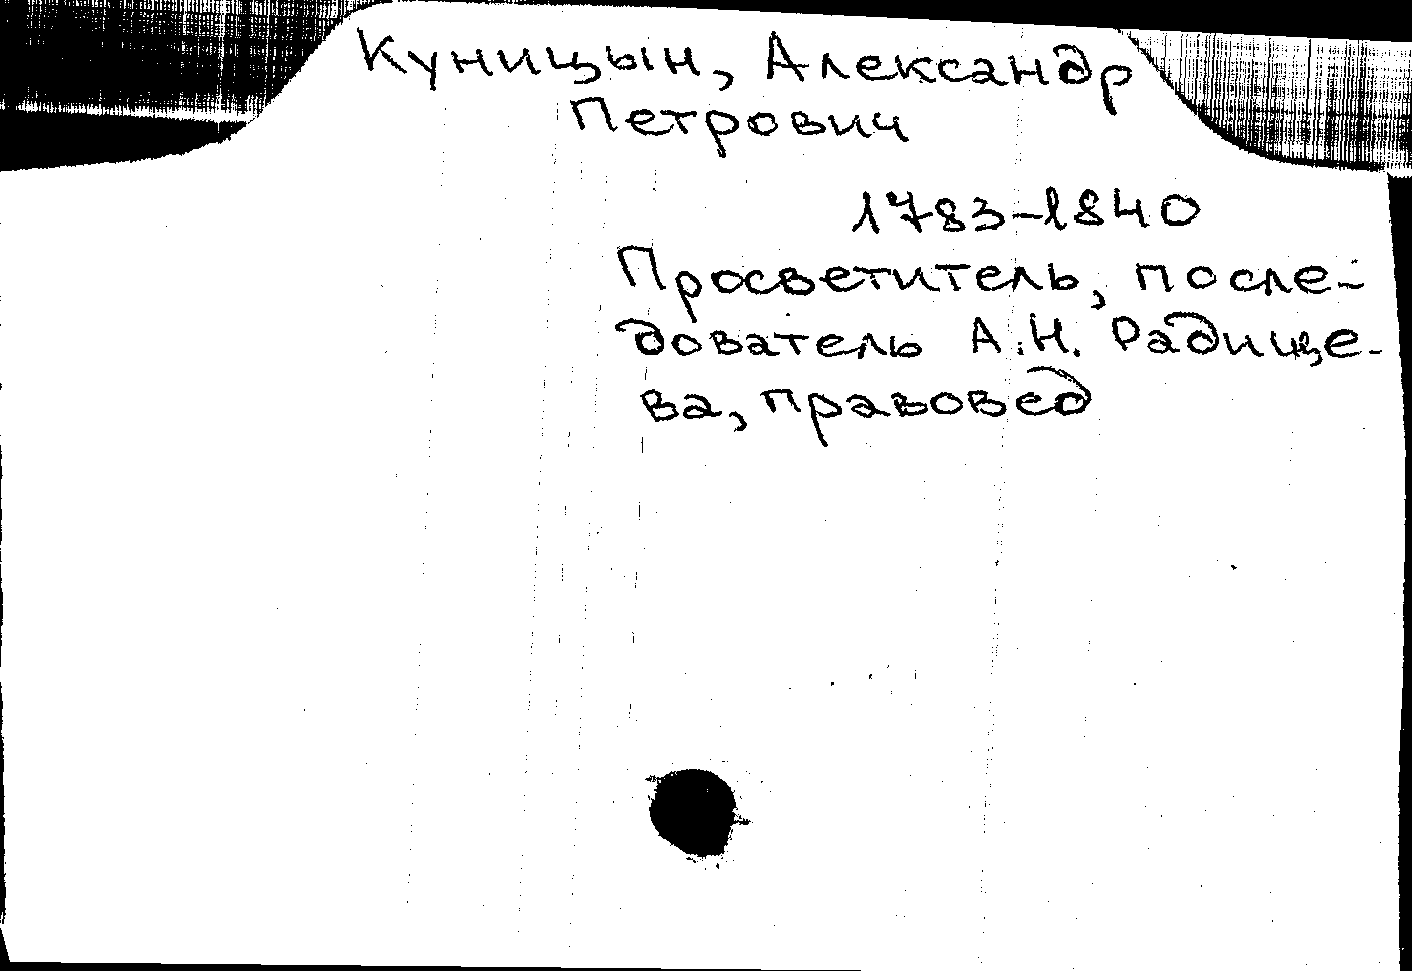 Куницын, Александр
Петрович
1783-1840
Просветитель, после-
дователь А.Н. Радище-
ва, правовед